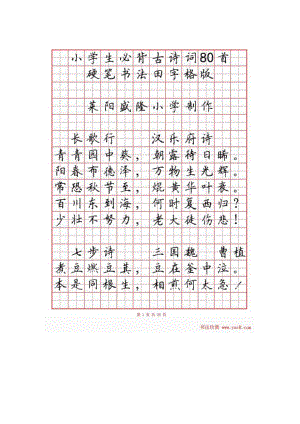 小学生必背古诗词80首
硬笔书法田字格版
莱阳盛隆小学制作
长歌行 汉乐府诗
青青园中葵，朝露待日晞。
阳春布德泽，万物生光辉。
常恐秋节至，焜黄华叶衰。
百川东到海，何时复西归？
少壮不努力，老大徒伤悲！
七步诗 三国魏 曹植
煮豆燃豆萁，豆在釜中泣。
本是同根生，相煎何太急！